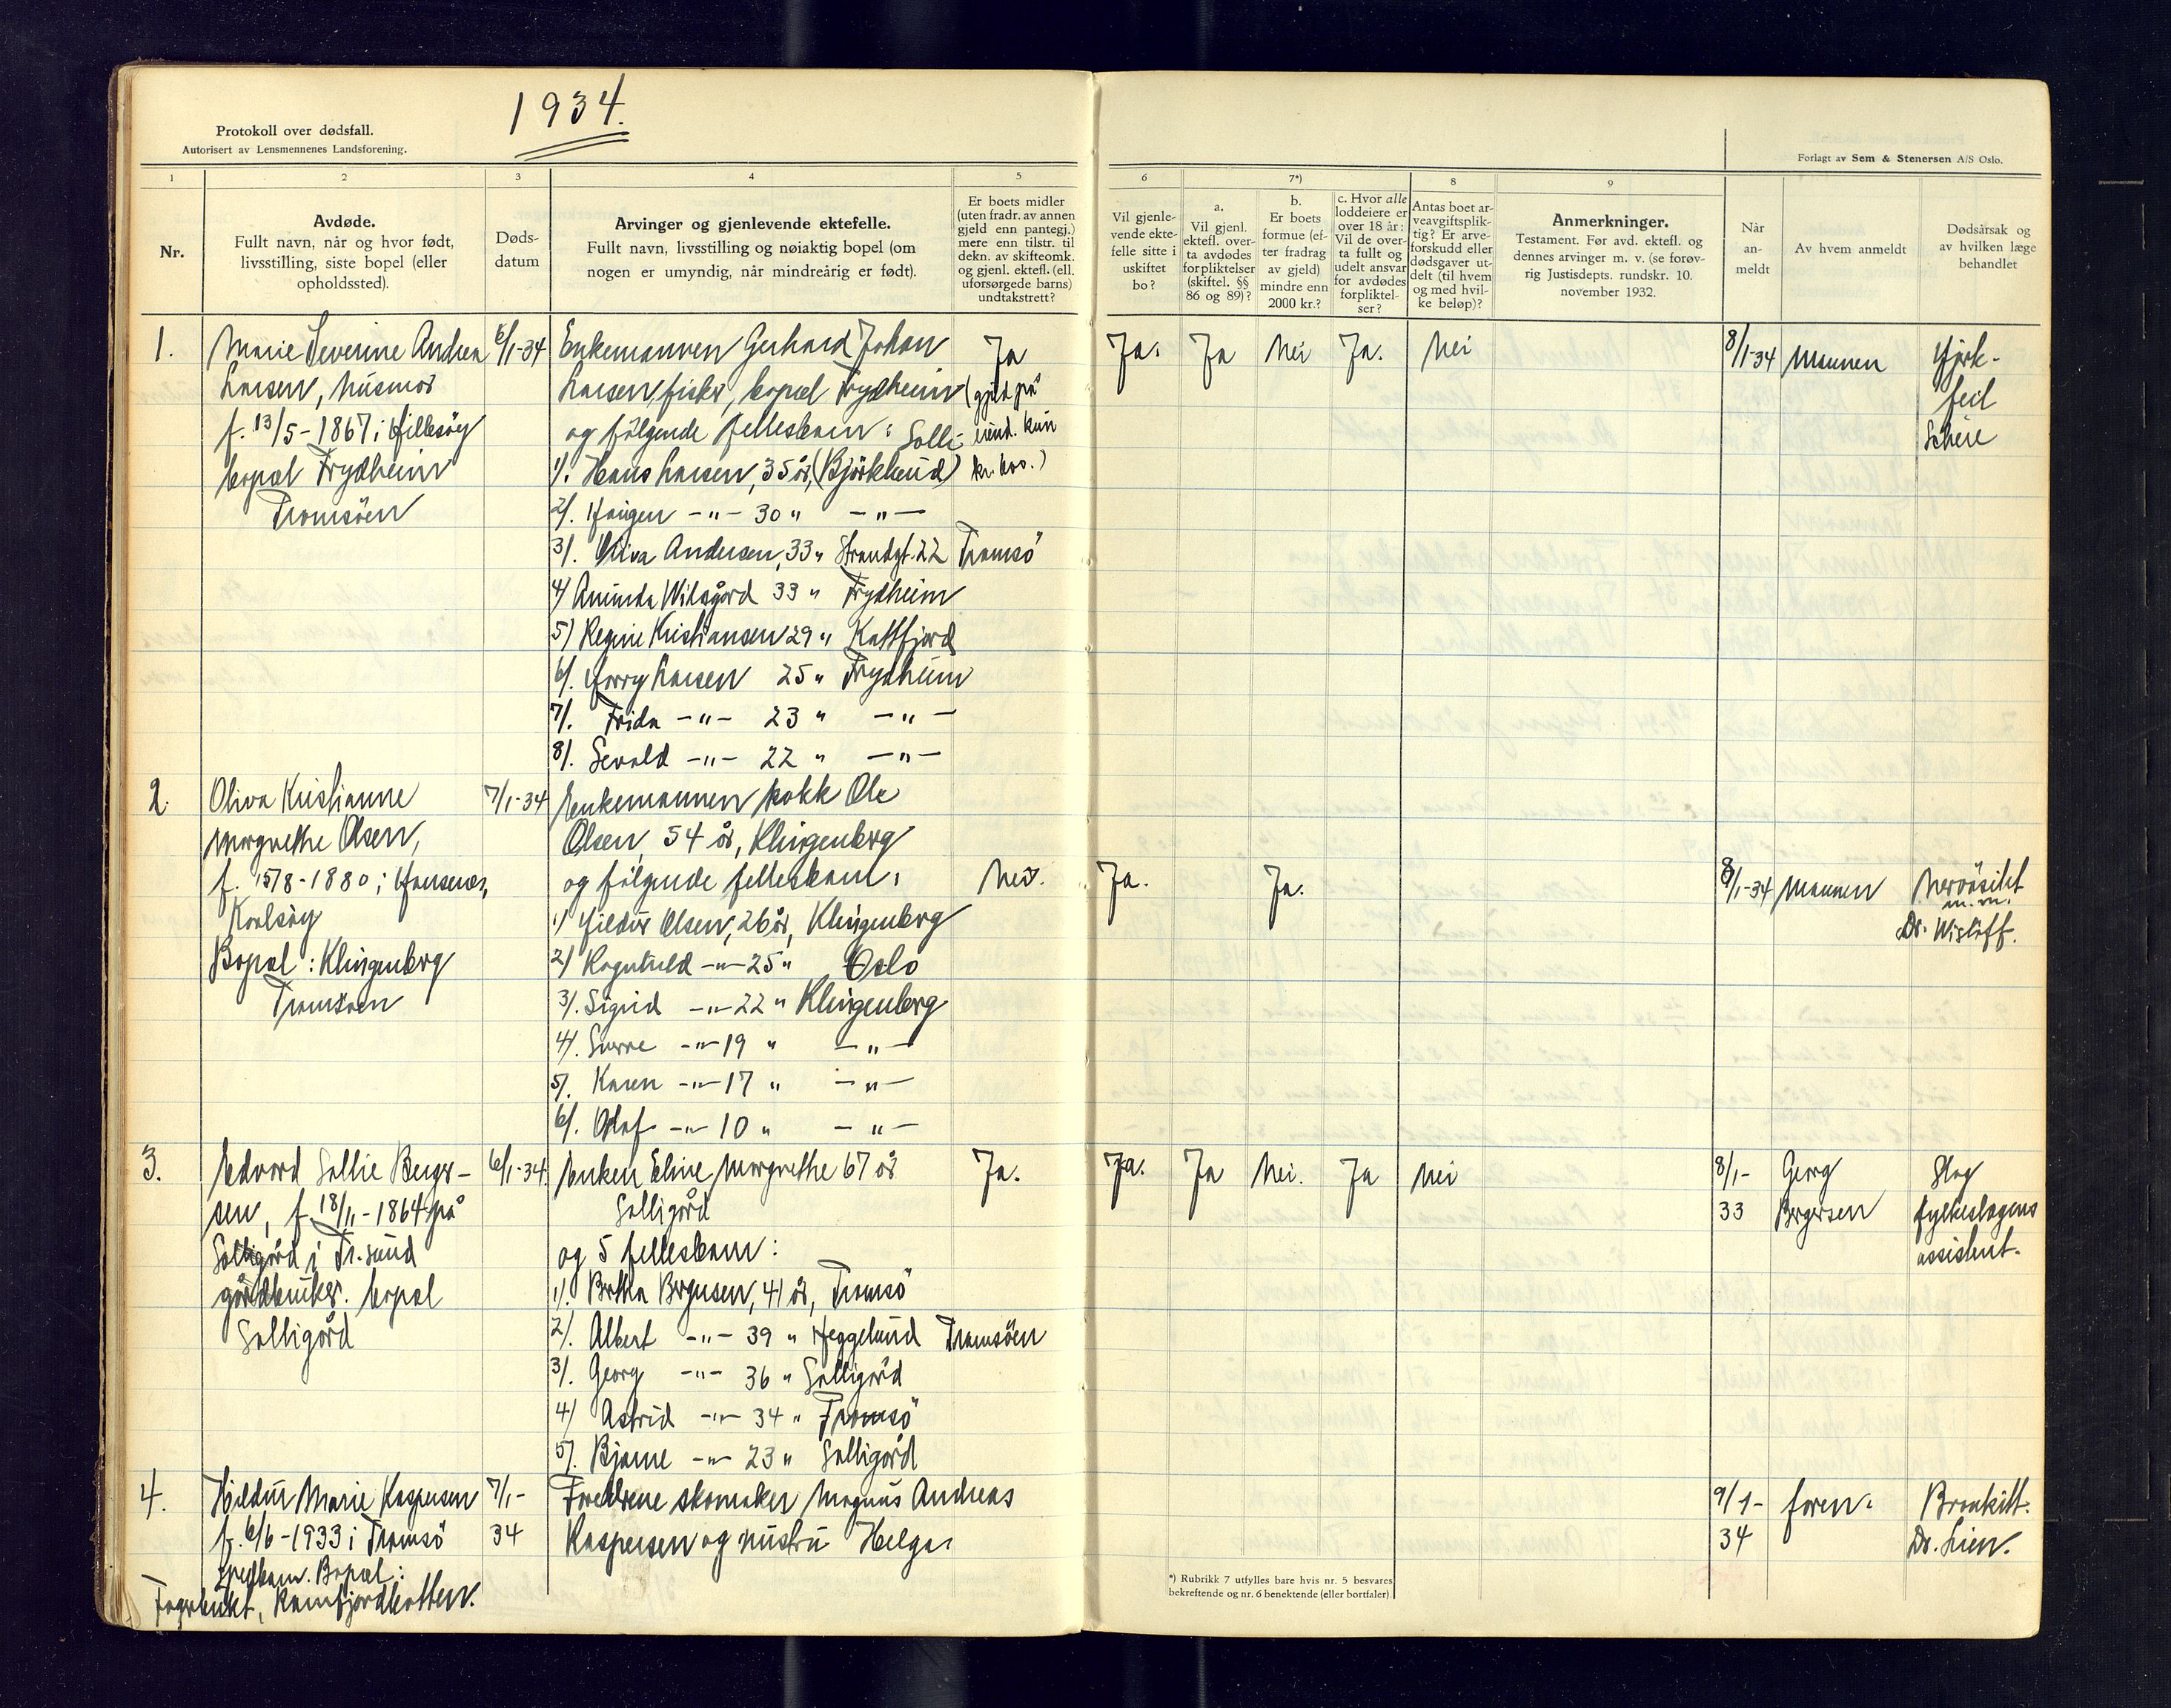 1934.
Protokoll over dødsfall.
Autorisert av Lensmennenes Landsforening.
Forlagt av Sem & Stenersen A/S Oslo.
1 2 3 4 5 6 7*) 8 9
Nr.
Avdøde.
Fullt navn, når og hvor født,
livsstilling, siste bopel (eller
opholdssted).
Døds-
datum
Arvinger og gjenlevende ektefelle.
Fullt navn, livsstilling og nøiaktig bopel (om
nogen er umyndig, når mindreårig er født).
Er boets midler
(uten fradr. av annen
gjeld enn pantegj.)
mere enn tilstr. til
dekn. av skifteomk.
og gjenl. ektef. (ell.
uforsørgede barns)
undtakstrett?
Vil gjenle-
vende ekte-
felle sitte i
uskiftet
bo?
a.
Vil gjenl.
ektefl. over-
ta avdødes
forpliktelser
(skiftel. §§
86 og 89)?
b.
Er boets
formue (ef-
ter fradrag
av gjeld)
mindre enn
2000 kr.?
c. Hvor alle
loddeiere er
over 18 år:
Vil de over-
ta fullt og
udelt ansvar
for avdødes
forpliktel-
ser?
Antas boet ar-
veavgiftsplik-
tig? Er arve-
forskudd eller
dødsgaver ut-
delt (til hvem
og med hvil-
ke beløp)?
Anmerkninger.
Testament. Før avd. ektefl. og
dennes arvinger m. v. (se forøv-
rig Justisdepts. rundskr. 10.
november 1932.
Når
an-
meldt
Av hvem anmeldt
Dødsårsak og
av hvilken læge
behandlet
1.
Marie Severine Andrea
Larsen, husmor
f. 13/5-1867 i Hillesøy
bopæl Frydheim
Tromsöen
6/1-34
Enkemannen Gerhard Johan
Larsen, fisker, bopæl Frydheim
og følgende fellesbarn:
1/. Hans Larsen, 35 år, (Björklund) Solli-
2/. Haugen -"- 30 " -"-
3/. Oliva Andersen, 33 " Strandgt. 22 Tromsö
4/ Aminda Wilsgård 33 " Frydheim
5) Regine Kristiansen 29 " Kattfjord
6/. Harry Larsen 25 " Frydheim
7/. Frida -"- 23 " -"-
8/. Sevald -"- 22 " -"-
Ja
(gjeld på
eiend. kun
Ja. Ja Nei Ja. Nei
8/1-34 Mannen
Hjerte-
feil
Scheie
2.
Oliva Kristianne
Margrethe Olsen,
f. 15/8-1880 i Hansenes,
Kvalsøy
Bopæl: Klingenberg
Tromsöen
7/1-34
Enkemannen kokk Ole
Olsen, 54 år, Klingenberg
og følgende fellesbarn:
1) Hildur Olsen, 26 år, Klingenberg
2/ Ragnhild -"- 25 " Oslo
3/. Sigrid -"- 22 " Klingenberg
4/. Sverre -"- 19 " -"-
5/. Karen -"- 17 " -"-
6/. Olaf -"- 10 " -"-
Nei. Ja. Ja.
8/1-34 Mannen
Nervøsitet
m.m.
Dr. Wisløff.
3.
Edvard Sollie Berger-
sen, f. 18/11-1864 på
Solligård i Tr.sund
gårdbruker. bopæl
Solligård
6/1-34.
Enken Eline Margrethe 67 år
Solligård
og 5 fellesbarn:
1). Bertha Bergersen, 41 år, Tromsö
2/. Albert -"- 39 " Heggelund Tromsöen
3/. Georg -"- 36 " Solligård
4/ Astrid -"- 34 " Tromsö
5/. Bjarne -"- 23 " Solligård
Ja. Ja. Ja Nei. Ja Nei
8/1-
33
Georg
Bergersen
Slag
fylkeslægens
assistent.
4.
Hildur Marie Kaspersen
f. 6/6-1933 i Tromsö
spedbarn. Bopæl:
Fagerbukt, Ramfjordbotten.
7/1-
34
Foreldrene skomaker Magnus Andreas
Kaspersen og hustru Helga
9/1-
34
foren.
Bronkitt.
Dr. Lien.
*) Rubrikk 7 utfylles bare hvis nr. 5 besvares
bekreftende og nr. 6 benektende (eller bortfaler).